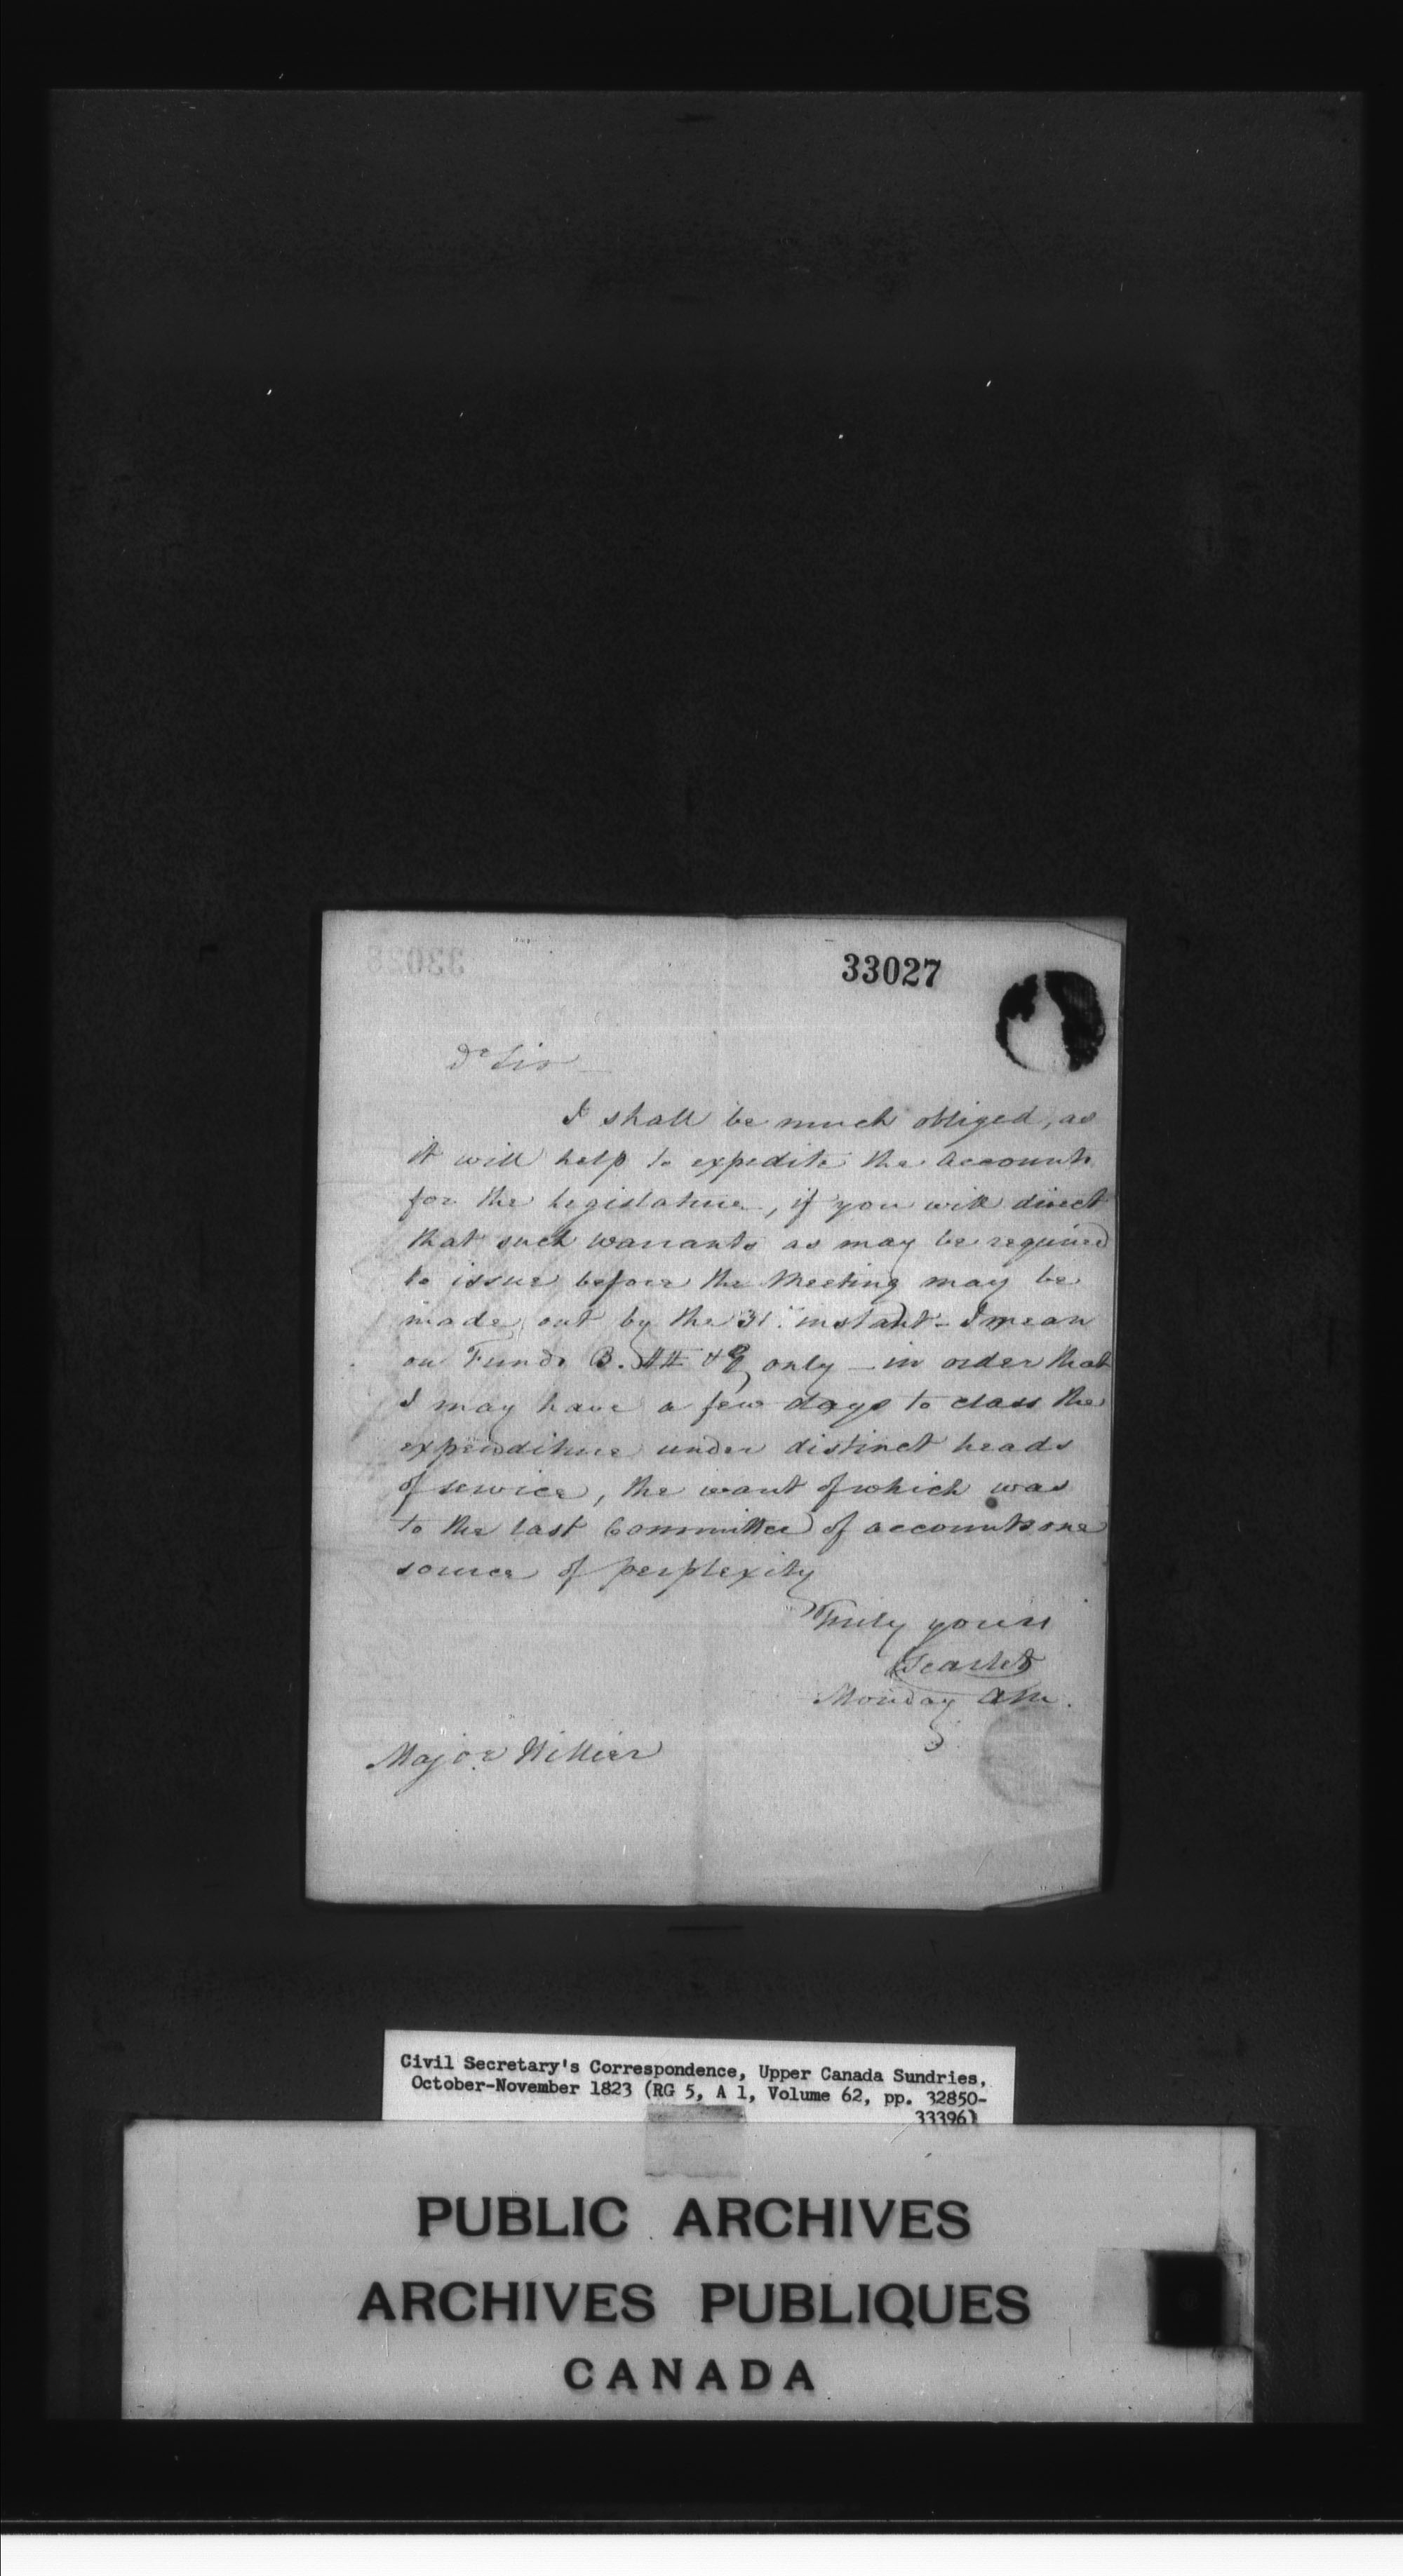 33027
Dr Sir
I shall be much obliged, as
it will help to expedite the accounts
for the legislature, if you will direct
that such warrants as may be required
to issue before the Meeting may be
made out by the 31st instant - I mean
on Funds B. only - in order that
I may have a few days to class the
expenditure under distinct heads
of service, the want of which was
to the last Committee of accounts one
source of perplexity
Truly yours
Monday AM.
Major Hillier
Civil Secretary's Correspondence, Upper Canada Sundries,
October-November 1823 (RG 5, A 1, Volume 62, pp. 32850-
33396)
PUBLIC ARCHIVES
ARCHIVES PUBLIQUES
CANADA